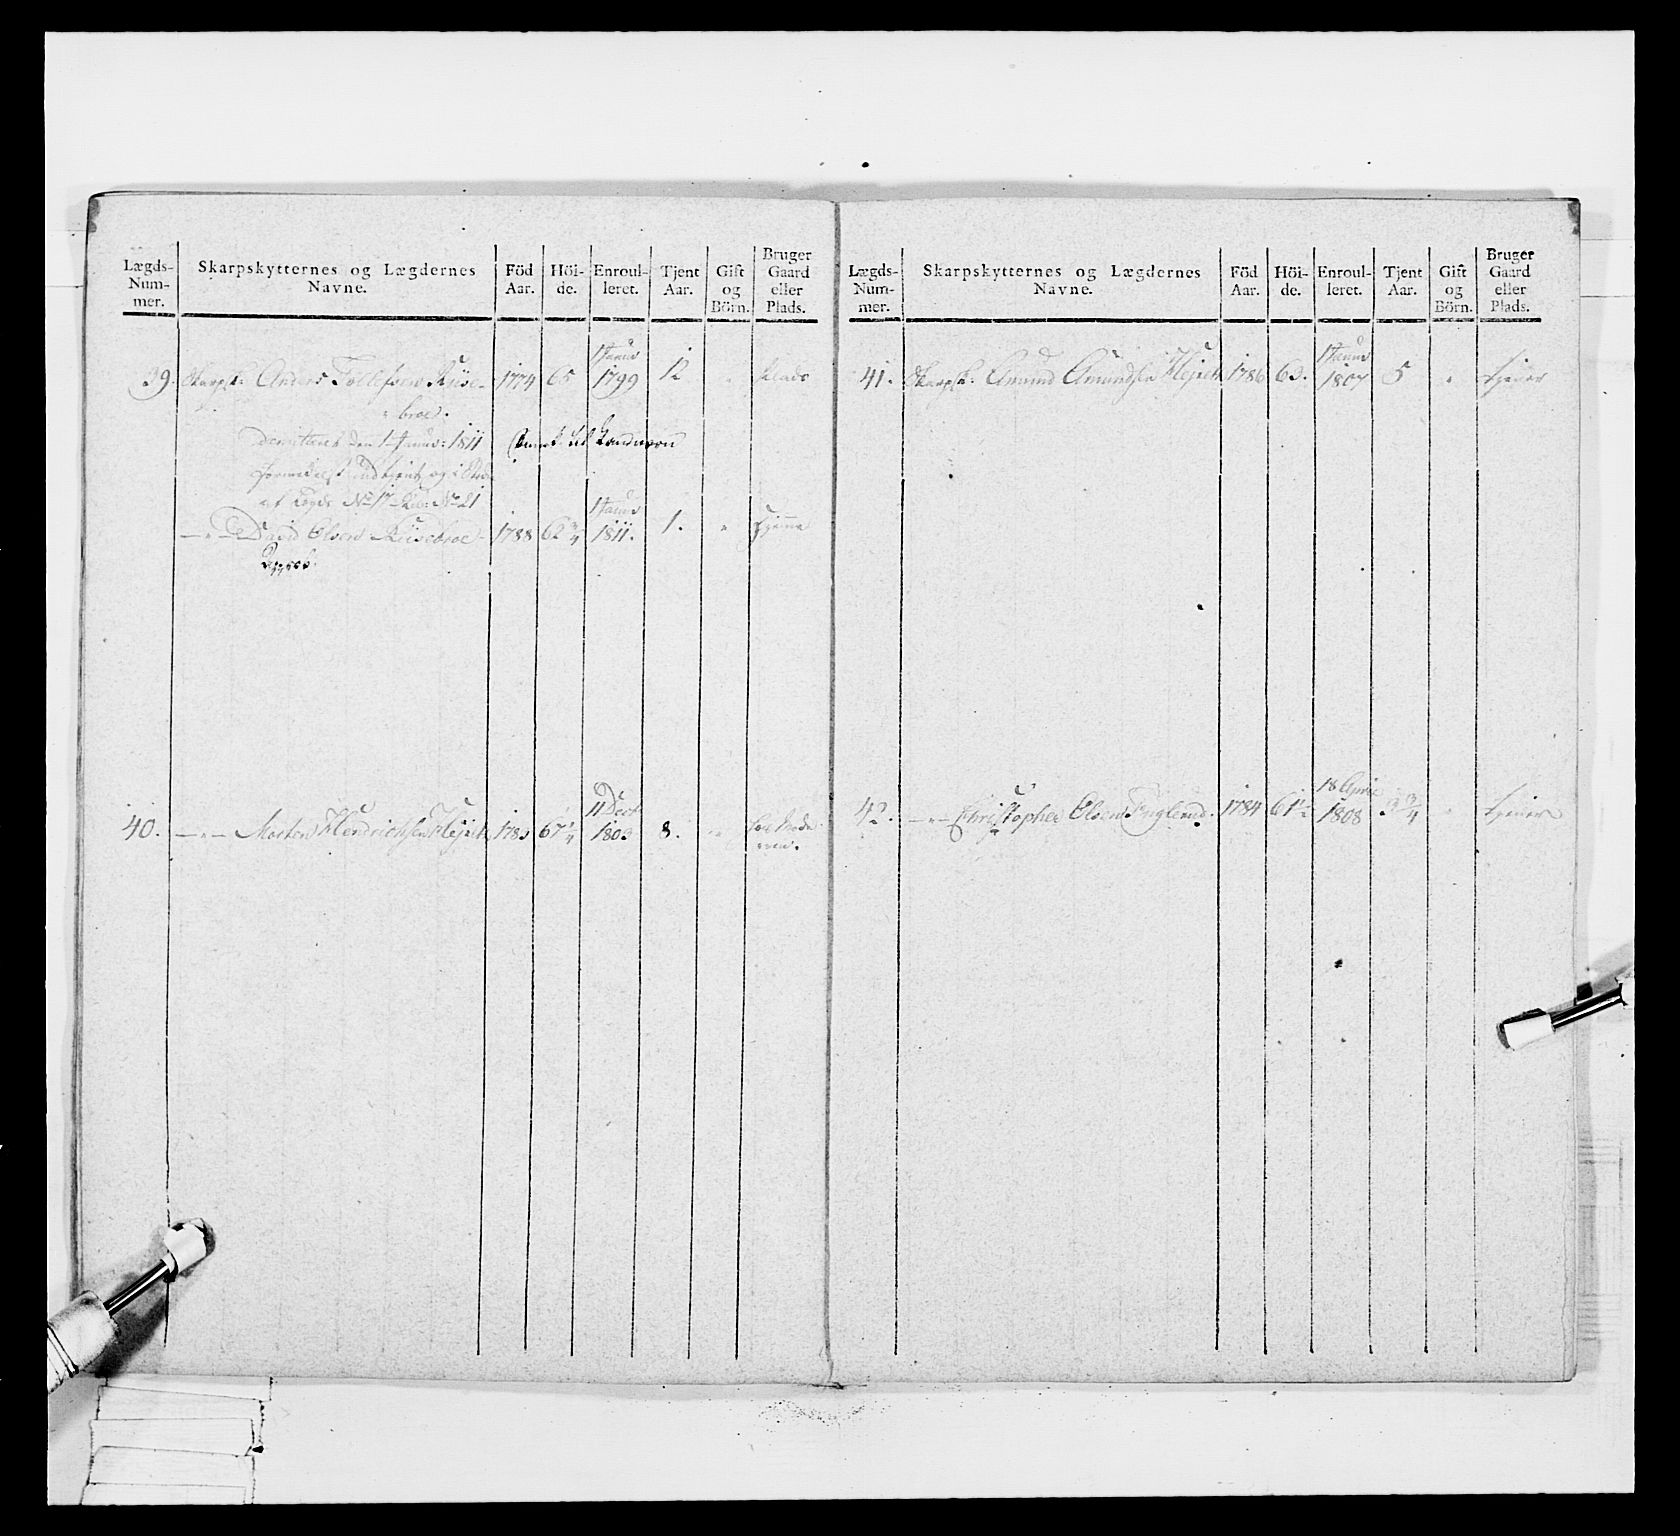 Lægds-
Num-
mer.
Skarpskytternes og Lægdernes
Navne.
Föd
Aar.
Höi-
de.
Enroul-
leret.
Tjent
Aar.
Gift
og
Börn.
Bruger
Gaard
eller
Plads.
39. Skarpsk: Anders Tollefsen Riise- 1774 65 1 Janud 1799 12 " Plads
broe.
den 1 Janud: 1811 til Landværn
og i
af Lægde No 17 No 21
—"— David Olsen Riisebroe 1788 62 3/4 1 Janud 1811. 1. " tjener
40. —"— Morten Hendrichsen 67 1/4 11 Dect 1803 8. "
Lægds-
Num-
mer.
Skarpskytternes og Lægdernes
Navne.
Föd
Aar.
Höi-
de.
Enroul-
leret.
Tjent
Aar.
Gift
og
Börn.
Bruger
Gaard
eller
Plads.
41. Skarpsk: Amund Amundsen 1786 63. 1 Janud 1807 5 " tjener
42. —"— Christopher Olsen Fuglerud. 1784 61 1/2 18 April 1808 3 3/4 " tjener